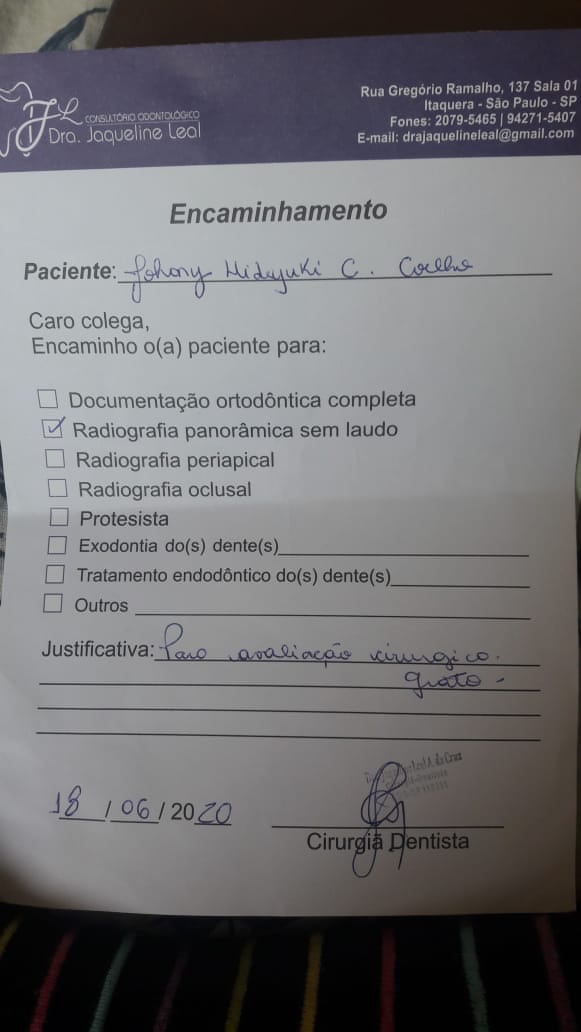 JL
CONSULTÓRIO ODONTOLÓGICO
Dra. Jaqueline Leal
Rua Gregório Ramalho, 137 Sala 01
Itaquera - São Paulo - SP
Fones: 2079-5465 | 94271-5407
E-mail: drajaquelineleal@gmail.com
Encaminhamento
Paciente: Johony Hideyuki C. Coelho
Caro colega,
Encaminho o(a) paciente para:
Documentação ortodôntica completa
Radiografia panorâmica sem laudo
Radiografia periapical
Radiografia oclusal
Protesista
Exodontia do(s) dente(s)
Tratamento endodôntico do(s) dente(s)
Outros
Justificativa: Para avaliação cirurgico.
grato -
18/06/2020
Cirurgiã Dentista